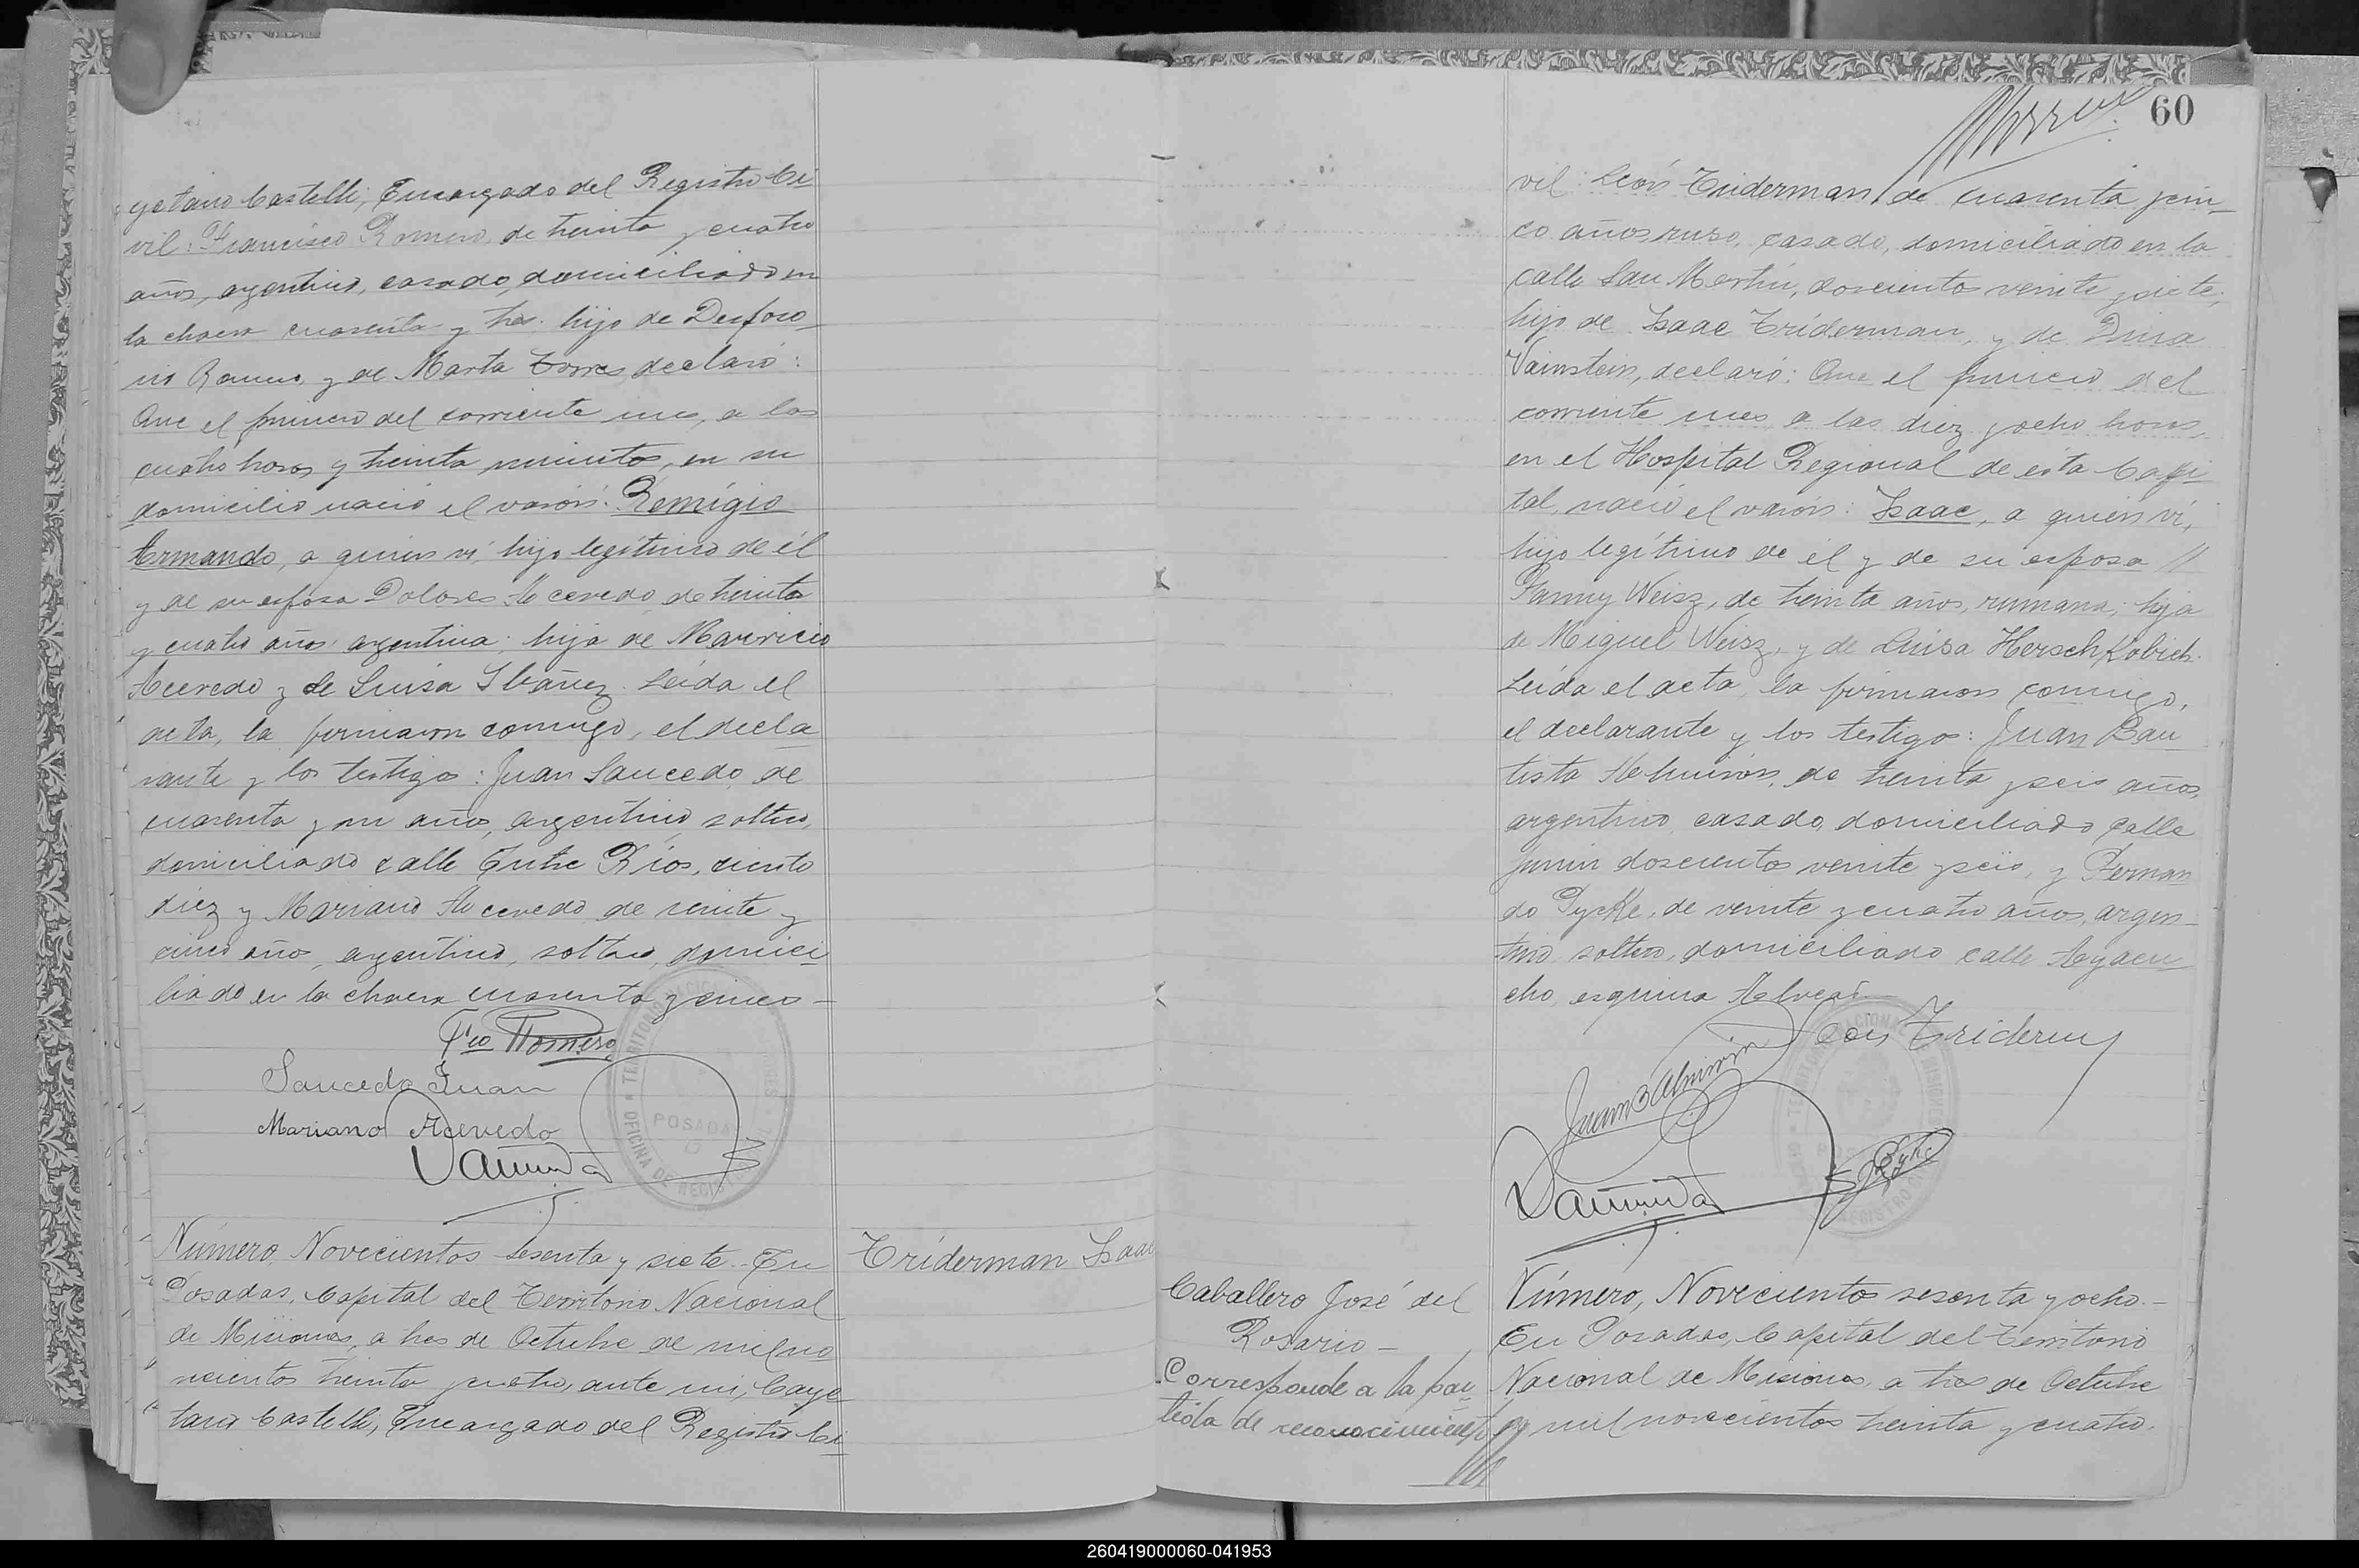 yetano Castelli, Encargado del Registro Ci
vil: Francisco Romero, de treinta y cuatro
años, argentino, casado, domiciliado en
la chacra cuarenta y tres. hijo de Deiforo-
no Romero y de Marta Torres, declaró:
Que el primero del corriente mes, a las
cuatro horas y treinta minutos, en su
domicilio nació el varón: Remigio
Armando, a quien vi, hijo legítimo de él
y de su esposa Dolores Acevedo, de treinta
y cuatro años, argentina; hija de Mauricio
Acevedo y de Luisa Ibáñez. Leída el
acta, la firmaron conmigo, el decla
rante y los testigos: Juan Saucedo, de
cuarenta y un años, argentino, soltero,
domiciliado calle Entre Ríos, ciento
diez y Mariano Acevedo, de veinte y
cinco años, argentino, soltero, domici
liado en la chacra cuarenta y cinco-
Fco Romero
Saucedo Juan
Mariano Acevedo
POSADAS
OFICINA DE REGISTRO
Número, Novecientos sesenta y siete. En
Posadas, Capital del Territorio Nacional
de Misiones, a tres de Octubre de mil no
vecientos treinta y cuatro, ante mi, Caye
tano Castelli, Encargado del Registro Ci
Triderman Isaac
60
vil: León Triderman, de cuarenta y cin-
co años, ruso, casado, domiciliado en la
calle San Martín, doscientos veinte y siete,
hijo de Isaac Triderman, y de Dina
Vainstein, declaró: Que el primero del
corriente mes a las diez y ocho horas,
en el Hospital Regional de esta Capi
tal, nació el varón: Isaac, a quien vi,
hijo legítimo de él y de su esposa //
Fanny Weisz, de treinta años, rumana; hija
de Miguel Weisz, y de Luisa Herschkobich.
Leída el acta, la firmaron conmigo,
el declarante y los testigos: Juan Bau
tista Almirón, de treinta y seis años,
argentino, casado, domiciliado calle
Junin doscientos veinte y seis, y Fernan
do Dycke, de veinte y cuatro años, argen-
tino, soltero, domiciliado calle Ayacu
cho, esquina Alvear.-
León Triderman
Juan B Almirón
Caballero José del
Rosario-
Corresponde a la par
tida de reconocimiento
Número, Novecientos sesenta y ocho.-
En Posadas, Capital del Territorio
Nacional de Misiones, a tres de Octubre
de mil novecientos treinta y cuatro,
260419000060-041953